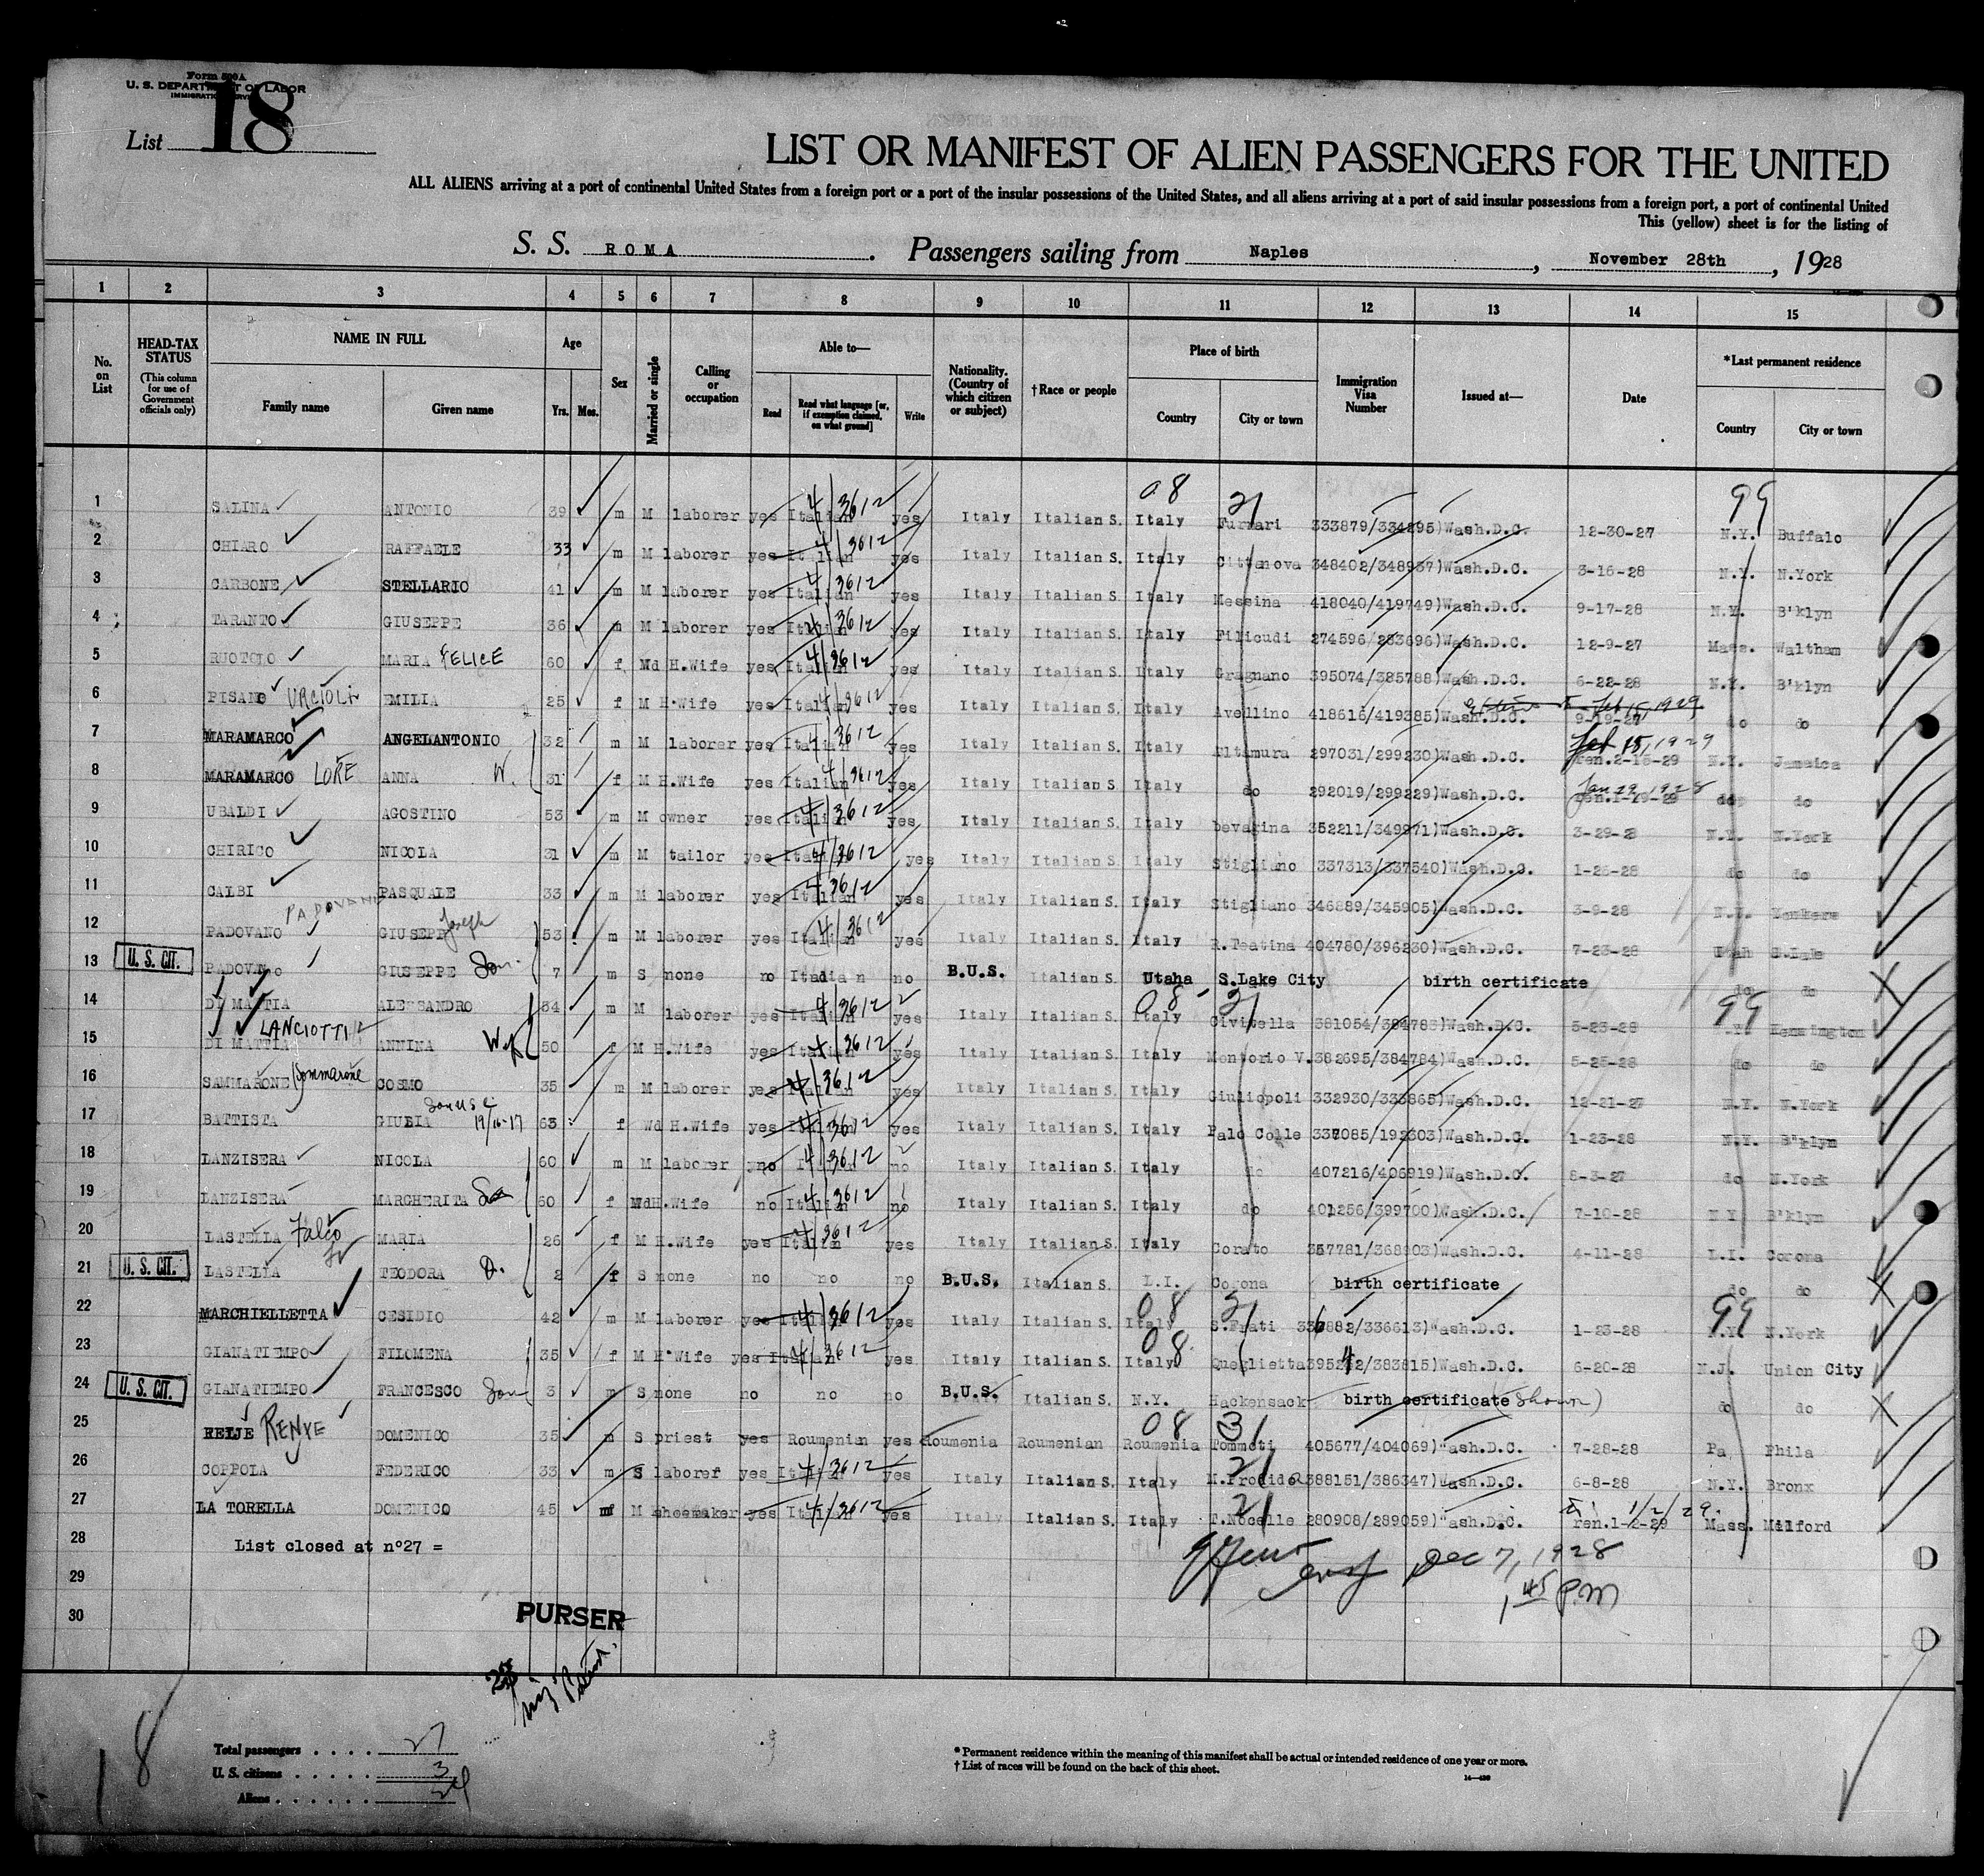 Form 500A
U. S. DEPARTMENT OF LABOR
IMMIGRATION SERVICE
List 18
LIST OR MANIFEST OF ALIEN PASSENGERS FOR THE UNITED
ALL ALIENS arriving at a port of continental United States from a foreign port or a port of the insular possessions of the United States, and all aliens arriving at a port of said insular possessions from a foreign port, a port of continental United
This (yellow) sheet is for the listing of
S. S. ROMA. Passengers sailing from Naples, November 28th, 1928
1 2 3 4 5 6 7 8 9 10 11 12 13 14 15
No. on List
HEAD-TAX STATUS (This column for use of Government officials only)
NAME IN FULL Family name Given name
Age Yrs. Mos.
Sex
Married or single
Calling or occupation
Able to— Read Read what language [or, if exemption claimed, on what ground] Write
Nationality. (Country of which citizen or subject)
†Race or people
Place of birth Country City or town
Immigration Visa Number
Issued at—
Date
*Last permanent residence Country City or town
08 21 99
1 SALINA ANTONIO 39 m M laborer yes Italian 4/3612 yes Italy Italian S. Italy Furnari 333879/334295) Wash.D.C. 12-30-27 N.Y. Buffalo
2 CHIARO RAFFAELE 33 m M laborer yes Italian 4/3612 yes Italy Italian S. Italy Cittanova 348402/348937) Wash.D.C. 3-16-28 N.Y. N.York
3 CARBONE STELLARIO 41 m M laborer yes Italian 4/3612 yes Italy Italian S. Italy Messina 418040/419749) Wash.D.C. 9-17-28 N.Y. B'klyn
4 TARANTO GIUSEPPE 36 m M laborer yes Italian 4/3612 yes Italy Italian S. Italy Filicudi 274596/283696) Wash.D.C. 12-9-27 Mass. Waltham
5 RUOTOLO MARIA FELICE 60 f Wd H.Wife yes Italian 4/3612 yes Italy Italian S. Italy Gragnano 395074/385788) Wash.D.C. 6-22-28 N.Y. B'klyn
6 PISANO URCIOLI EMILIA 25 f M H.Wife yes Italian 4/3612 yes Italy Italian S. Italy Avellino 418616/419385) Wash.D.C. 9-19-27 Feb 15, 1929 do do
7 MARAMARCO ANGELANTONIO 32 m M laborer yes Italian 4/3612 yes Italy Italian S. Italy Altamura 297031/299230) Wash.D.C. Feb 15, 1929 ren.2-15-29 N.Y. Jamaica
8 MARAMARCO LORE ANNA W. 31 f M H.Wife yes Italian 4/3612 yes Italy Italian S. Italy do 292019/299229) Wash.D.C. Jan 29, 1928 ren.1-29-29 do do
9 UBALDI AGOSTINO 53 m M owner yes Italian 4/3612 yes Italy Italian S. Italy bevagina 352211/349971) Wash.D.C. 3-29-28 N.Y. N.York
10 CHIRICO NICOLA 31 m M tailor yes Italian 4/3612 yes Italy Italian S. Italy Stigliano 337313/337540) Wash.D.C. 1-26-28 do do
11 CALBI PASQUALE 33 m M laborer yes Italian 4/3612 yes Italy Italian S. Italy Stigliano 346889/345905) Wash.D.C. 3-9-28 N.Y. Yonkers
PADOVANO
12 PADOVANO GIUSEPPE Joseph 53 m M laborer yes Italian 4/3612 yes Italy Italian S. Italy R.Teatina 404780/396230) Wash.D.C. 7-23-28 Utah S.Lake
13 U. S. CIT. PADOVANO GIUSEPPE Son. 7 m S none no Italian no B.U.S. Italian S. Utaha S.Lake City birth certificate do do
08 21 99
14 DI MATTIA ALESSANDRO 54 m M laborer yes Italian 4/3612 yes Italy Italian S. Italy Civitella 381054/384783) Wash.D.C. 5-23-28 Kensington
15 DI MATTIA LANCIOTTI ANNINA Wf 50 f M H.Wife yes Italian 4/3612 yes Italy Italian S. Italy Montorio V. 382695/384784) Wash.D.C. 5-25-28 do do
16 SAMMARONE Sommarone COSMO 35 m M laborer yes Italian 4/3612 yes Italy Italian S. Italy Giuliopoli 332930/333865) Wash.D.C. 12-21-27 N.Y. N.York
17 BATTISTA GIULIA 19/16-17 63 f Wd H.Wife yes Italian 4/3612 yes Italy Italian S. Italy Palo Colle 337085/192303) Wash.D.C. 1-23-28 N.Y. B'klyn
18 LANZISERA NICOLA 60 m M laborer no 4/3612 no Italy Italian S. Italy do 407216/406919) Wash.D.C. 8-3-27 do N.York
19 LANZISERA MARGHERITA 60 f Wd H.Wife no Italian 4/3612 no Italy Italian S. Italy do 401256/399700) Wash.D.C. 7-10-28 N.Y. B'klyn
20 LASTELLA Falco MARIA 26 f M H.Wife yes Italian 4/3612 yes Italy Italian S. Italy Corato 357781/368903) Wash.D.C. 4-11-28 L.I. Corona
21 U. S. CIT. LASTELLA TEODORA D. 2 f S none no no no B.U.S. Italian S. L.I. Corona birth certificate do do
08 21 99
22 MARCHIELLETTA CESIDIO 42 m M laborer yes Italian 4/3612 yes Italy Italian S. Italy S.Frati 336882/336613) Wash.D.C. 1-23-28 N.Y. N.York
23 GIANATIEMPO FILOMENA 35 f M H.Wife yes Italian 4/3612 yes Italy Italian S. Italy 08 Queglietta 395242/383815) Wash.D.C. 6-20-28 N.J. Union City
24 U. S. CIT. GIANATIEMPO FRANCESCO Son 3 m S none no no no B.U.S. Italian S. N.Y. Hackensack birth certificate (Shown) do do
08 31
25 RELJE RENYE DOMENICO 35 m S priest yes Roumenian yes Roumenia Roumenian Roumenia Tommoti 405677/404069) Wash.D.C. 7-28-28 Pa Phila
26 COPPOLA FEDERICO 33 m S laborer yes Italian 4/3612 yes Italy Italian S. Italy 21 M.Procida 388151/386347) Wash.D.C. 6-8-28 N.Y. Bronx
27 LA TORELLA DOMENICO 45 m M shoemaker yes Italian 4/3612 yes Italy Italian S. Italy 21 T.Nocelle 280908/289059) Wash.D.C. 1/2/29. ren.1-2-29 Mass. Milford
28 List closed at n°27 =
Dec 7, 1928
29
1 45 P.M
30
PURSER
18
Total passengers .... 27
U. S. citizens ..... 3
Aliens ...... 24
*Permanent residence within the meaning of this manifest shall be actual or intended residence of one year or more.
†List of races will be found on the back of this sheet.